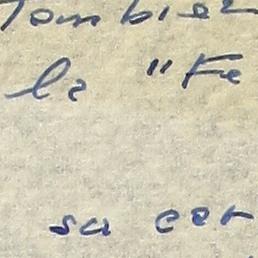 Tombier
la "Fe
sa car